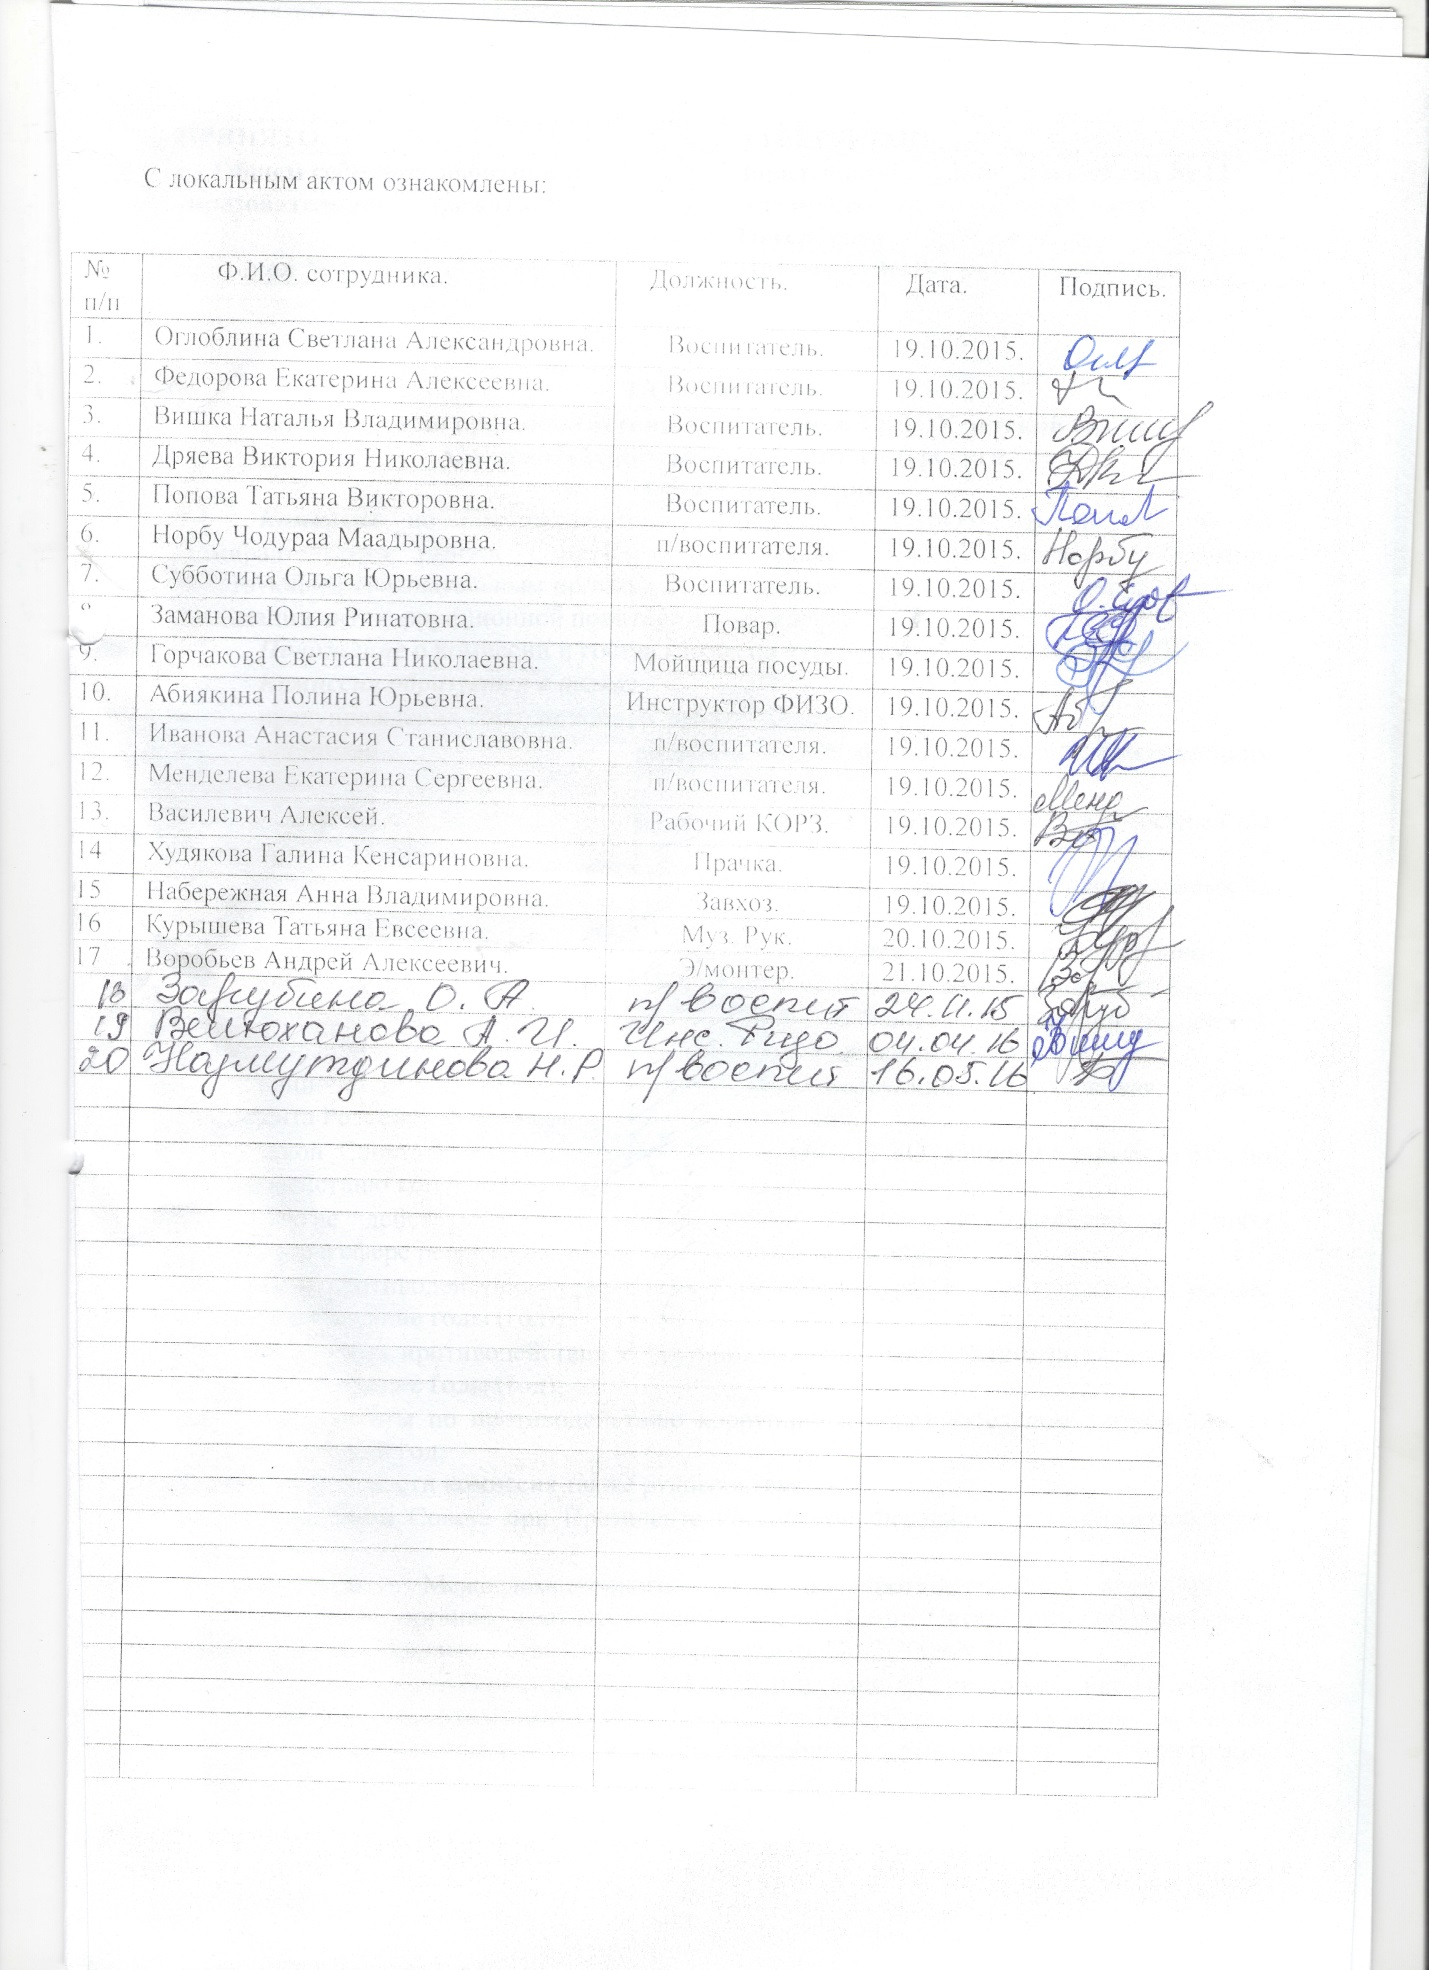 С локальным актом ознакомлены:
№ п/п Ф.И.О. сотрудника. Должность. Дата. Подпись.
1. Оглоблина Светлана Александровна. Воспитатель. 19.10.2015.
2. Федорова Екатерина Алексеевна. Воспитатель. 19.10.2015.
3. Вишка Наталья Владимировна. Воспитатель. 19.10.2015.
4. Дряева Виктория Николаевна. Воспитатель. 19.10.2015.
5. Попова Татьяна Викторовна. Воспитатель. 19.10.2015.
6. Норбу Чодураа Маадыровна. п/воспитателя. 19.10.2015. Норбу
7. Субботина Ольга Юрьевна. Воспитатель. 19.10.2015.
Заманова Юлия Ринатовна. Повар. 19.10.2015.
9. Горчакова Светлана Николаевна. Мойщица посуды. 19.10.2015.
10. Абиякина Полина Юрьевна. Инструктор ФИЗО. 19.10.2015.
11. Иванова Анастасия Станиславовна. п/воспитателя. 19.10.2015.
12. Менделева Екатерина Сергеевна. п/воспитателя. 19.10.2015.
13. Василевич Алексей. Рабочий КОРЗ. 19.10.2015.
14 Худякова Галина Кенсариновна. Прачка. 19.10.2015.
15 Набережная Анна Владимировна. Завхоз. 19.10.2015.
16 Курышева Татьяна Евсеевна. Муз. Рук. 20.10.2015.
17 Воробьев Андрей Алексеевич. Э/монтер. 21.10.2015.
18 Зарубина О. А п/воспит 24.11.15
19 А. И. Инс. Физо 04.04.16
20 Назмутдинова Н.Р. п/воспит 16.05.16